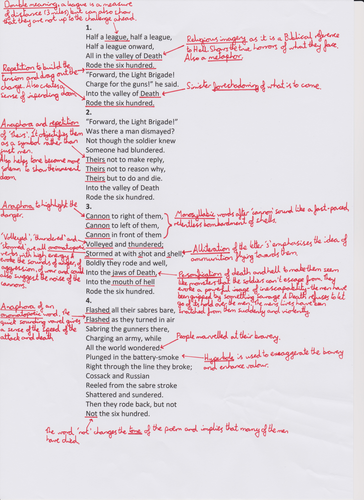 Double meaning: a league is a measure
of distance (3 miles) but can also show
that they are not up to the challenge ahead.
1.
Half a league, half a league,
Half a league onward,
All in the valley of Death
Rode the six hundred.
"Forward, the Light Brigade!
Charge for the guns!" he said.
Into the valley of Death
Rode the six hundred.
Religious imagery as it is a Biblical reference
to Hell. Shows the true horrors of what they face.
Also a metaphor.
Repetition to build the
tension and drag out the
charge. Also creates a
sense of impending doom.
Sinister foreshadowing of what is to come.
2.
"Forward, the Light Brigade!"
Was there a man dismayed?
Not though the soldier knew
Someone had blundered.
Theirs not to make reply,
Theirs not to reason why,
Theirs but to do and die.
Into the valley of Death
Rode the six hundred.
Anaphora and repetition
of 'theirs'. It objectifies them
as a symbol rather than
just men.
Also helps tone become more
solemn to show the imminent
doom.
3.
Cannon to right of them,
Cannon to left of them,
Cannon in front of them
Volleyed and thundered;
Stormed at with shot and shell,
Boldly they rode and well,
Into the jaws of Death,
Into the mouth of hell
Rode the six hundred.
Anaphora to highlight the
danger.
'Volleyed', 'thundered' and
'stormed' are all onomatopoeic
verbs with high energy &
evoke the sounds of anger, of
aggression, of war and could
also suggest the noise of the
cannons.
Monosyllabic words after 'cannon' sound like a fast-paced,
relentless bombardment of shells.
Alliteration of the letter 's' emphasises the idea of
ammunition flying towards them.
Personification of death and hell to make them seem
like monsters that the soldiers can't escape from. They
create a powerful image of inescapability - the men have
been gripped by something savage & Death refuses to let
go of its hold over the men. The men's lives have been
snatched from them suddenly and violently.
4.
Flashed all their sabres bare,
Flashed as they turned in air
Sabring the gunners there,
Charging an army, while
All the world wondered.
Plunged in the battery-smoke
Right through the line they broke;
Cossack and Russian
Reeled from the sabre stroke
Shattered and sundered.
Then they rode back, but not
Not the six hundred.
Anaphora of an
onomatopoeic word. The
quick sounding vowel gives
a sense of the speed of the
attack and death.
People marvelled at their bravery.
Hyperbole is used to exaggerate the bravery
and enhance valour.
The word 'not' changes the tone of the poem and implies that many of the men
have died.